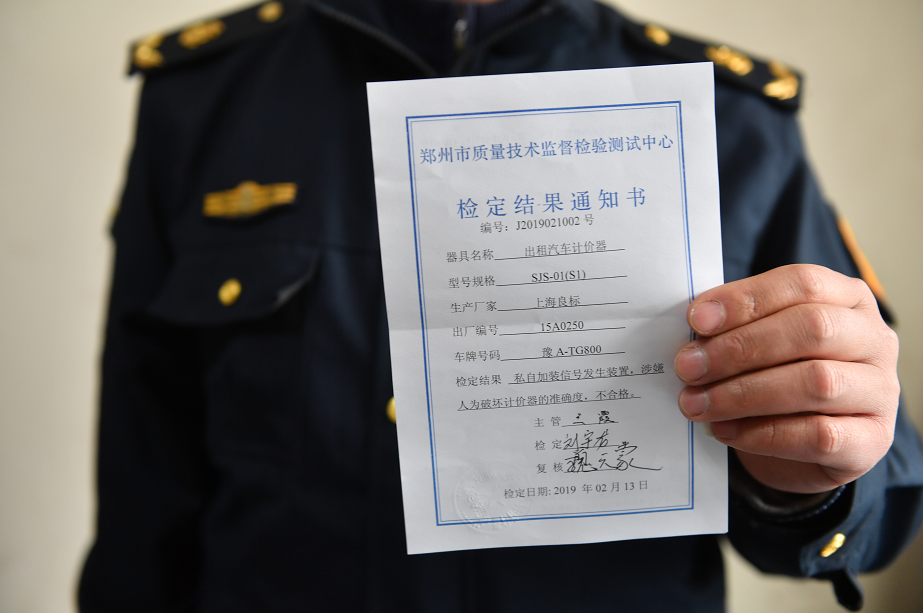 郑州市质量技术监督检验测试中心
检定结果通知书
编号：J2019021002 号
器具名称 出租汽车计价器
型号规格 SJS-01(S1)
生产厂家 上海良标
出厂编号 15A0250
车牌号码 豫 A-TG800
检定结果 私自加装信号发生装置，涉嫌
人为破坏计价器的准确度，不合格。
主 管
检 定
复 核
检定日期: 2019 年 02 月 13 日